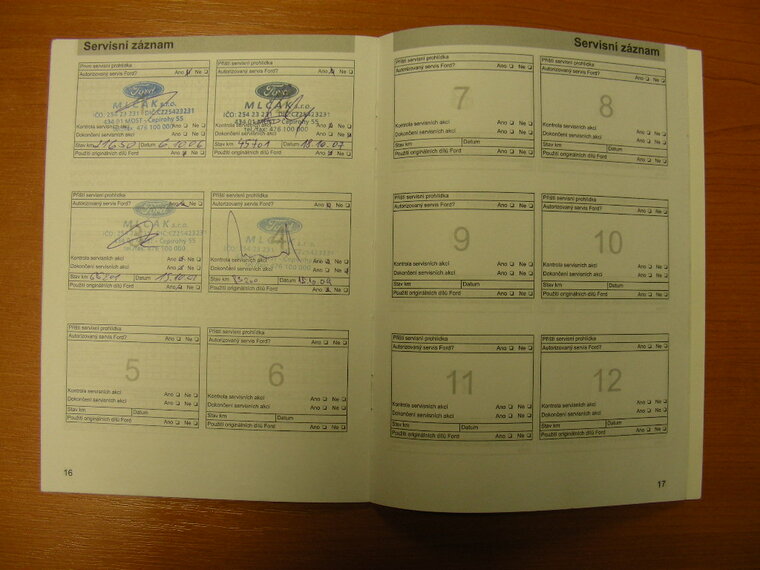 Servisní záznam
První servisní prohlídka
Autorizovaný servis Ford? Ano Ne
Ford
MLČAK s.r.o.
IČO: 254 23 231 DIČ: CZ25423231
434 01 MOST - Čepirohy 55
tel./fax: 476 100 000
Kontrola servisních akcí Ano Ne
Dokončení servisních akcí Ano Ne
Stav km Datum 6.10.06
Použití originálních dílů Ford Ano Ne
Příští servisní prohlídka
Autorizovaný servis Ford? Ano Ne
Ford
MLČAK s.r.o.
IČO: 254 23 231 DIČ: CZ25423231
434 01 MOST - Čepirohy 55
tel./fax: 476 100 000
Kontrola servisních akcí Ano Ne
Dokončení servisních akcí Ano Ne
Stav km 45701 Datum 18.10.07
Použití originálních dílů Ford Ano Ne
Příští servisní prohlídka
Autorizovaný servis Ford? Ano Ne
Ford
MLČAK s.r.o.
Kontrola servisních akcí Ano Ne
Dokončení servisních akcí Ano Ne
Stav km Datum
Použití originálních dílů Ford Ano Ne
Příští servisní prohlídka
Autorizovaný servis Ford? Ano Ne
Ford
4
Kontrola servisních akcí Ano Ne
Dokončení servisních akcí Ano Ne
Stav km Datum
Použití originálních dílů Ford Ano Ne
Příští servisní prohlídka
Autorizovaný servis Ford? Ano Ne
5
Kontrola servisních akcí Ano Ne
Dokončení servisních akcí Ano Ne
Stav km Datum
Použití originálních dílů Ford Ano Ne
Příští servisní prohlídka
Autorizovaný servis Ford? Ano Ne
6
Kontrola servisních akcí Ano Ne
Dokončení servisních akcí Ano Ne
Stav km Datum
Použití originálních dílů Ford Ano Ne
16
Servisní záznam
Příští servisní prohlídka
Autorizovaný servis Ford? Ano Ne
7
Kontrola servisních akcí Ano Ne
Dokončení servisních akcí Ano Ne
Stav km Datum
Použití originálních dílů Ford Ano Ne
Příští servisní prohlídka
Autorizovaný servis Ford? Ano Ne
8
Kontrola servisních akcí Ano Ne
Dokončení servisních akcí Ano Ne
Stav km Datum
Použití originálních dílů Ford Ano Ne
Příští servisní prohlídka
Autorizovaný servis Ford? Ano Ne
9
Kontrola servisních akcí Ano Ne
Dokončení servisních akcí Ano Ne
Stav km Datum
Použití originálních dílů Ford Ano Ne
Příští servisní prohlídka
Autorizovaný servis Ford? Ano Ne
10
Kontrola servisních akcí Ano Ne
Dokončení servisních akcí Ano Ne
Stav km Datum
Použití originálních dílů Ford Ano Ne
Příští servisní prohlídka
Autorizovaný servis Ford? Ano Ne
11
Kontrola servisních akcí Ano Ne
Dokončení servisních akcí Ano Ne
Stav km Datum
Použití originálních dílů Ford Ano Ne
Příští servisní prohlídka
Autorizovaný servis Ford? Ano Ne
12
Kontrola servisních akcí Ano Ne
Dokončení servisních akcí Ano Ne
Stav km Datum
Použití originálních dílů Ford Ano Ne
17